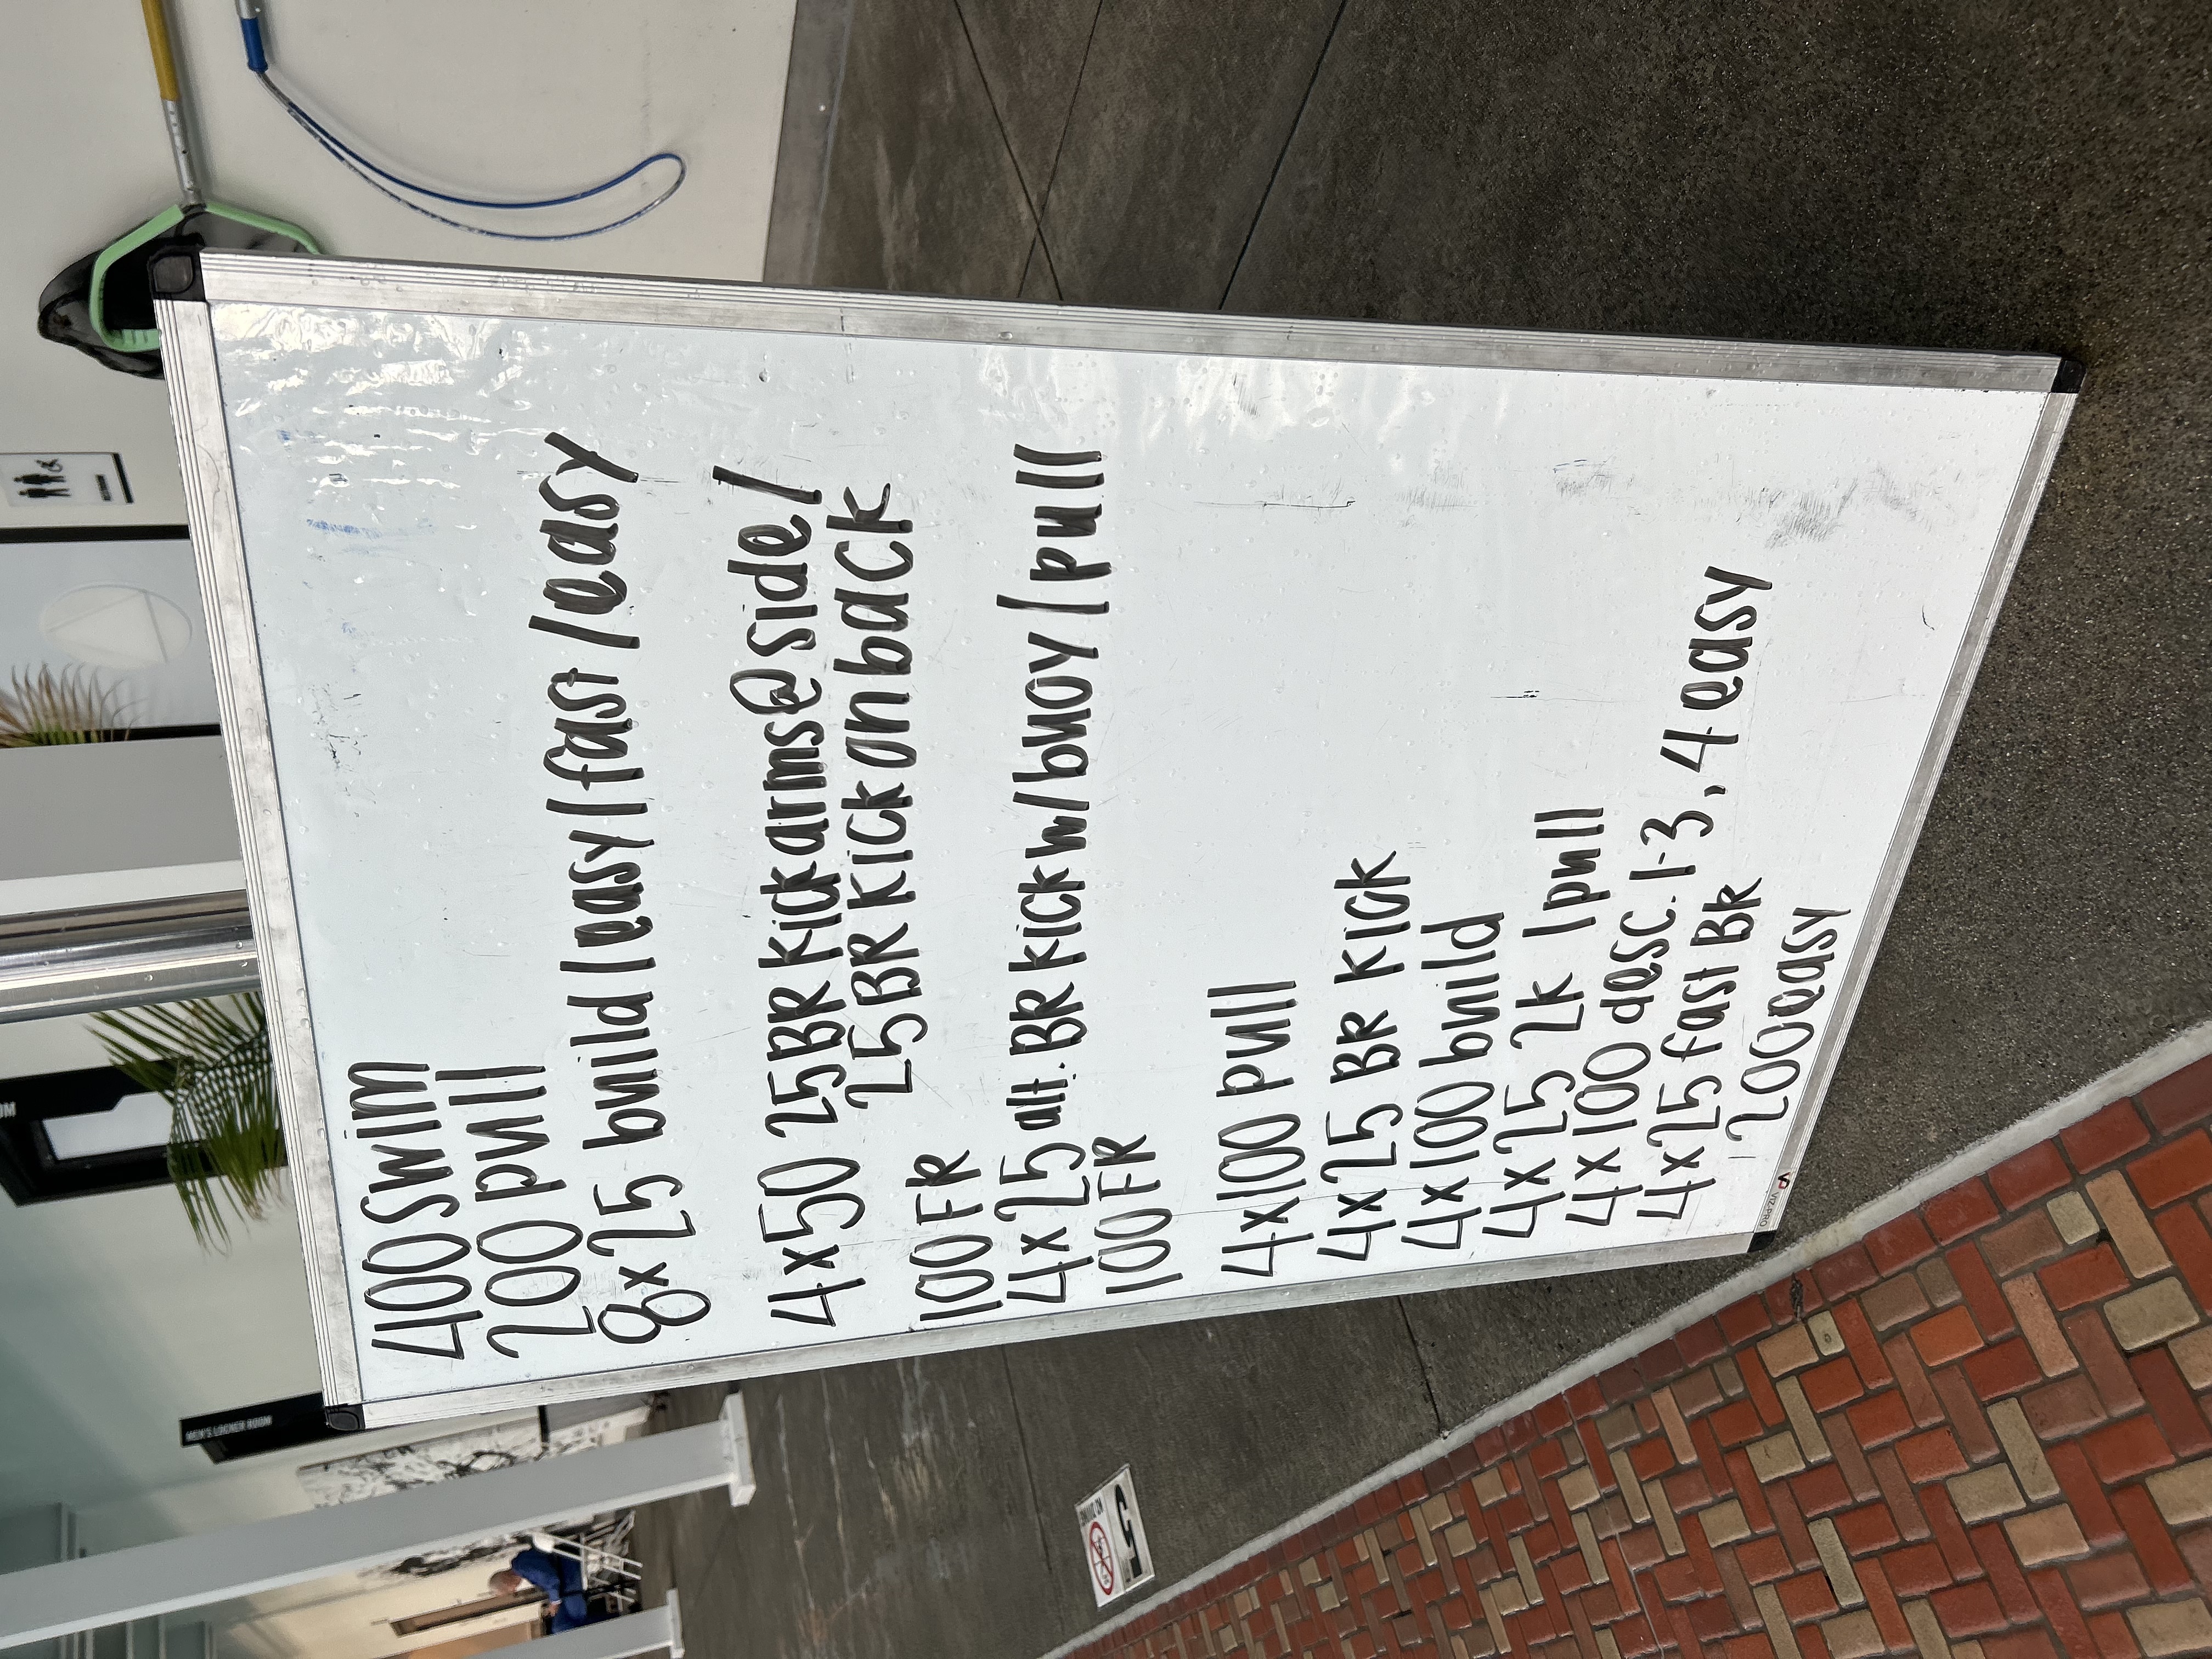 400 swim
200 pull
8x25 build/easy/fast/easy
4x50 25 BR kick arms@side/
25 BR kick on back
100 FR
4x25 alt. BR kick w/buoy/pull
100 FR
4x100 pull
4x25 BR kick
4x100 build
4x25 2k 1pull
4x100 desc. 1-3, 4 easy
4x25 fast BR
200 easy
VIZ-PRO
MEN'S LOCKER ROOM
NO DIVING
5